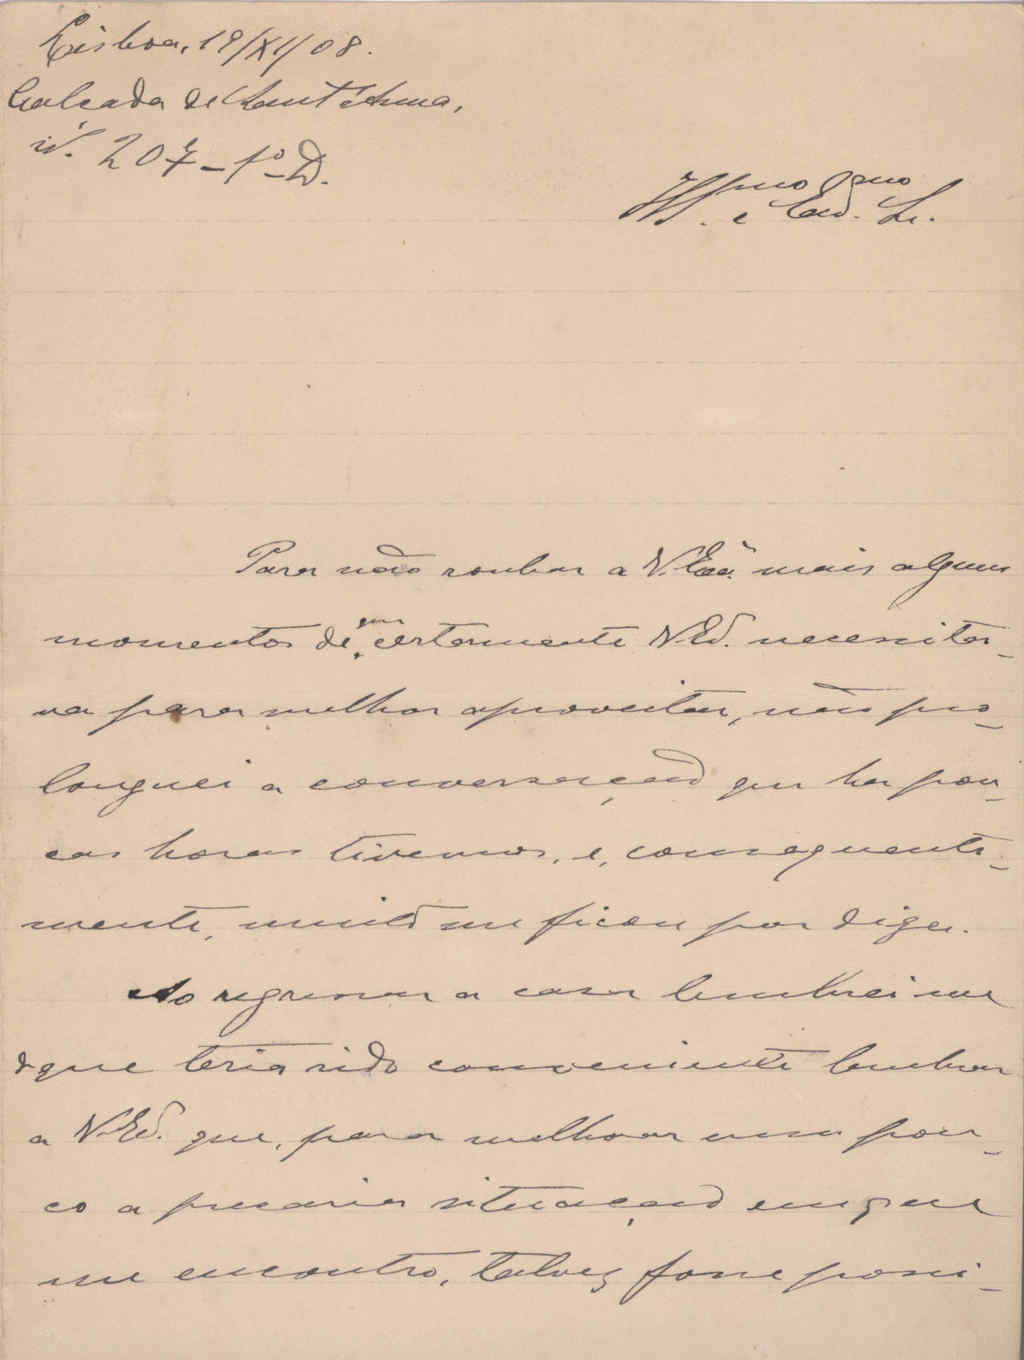 Lisboa, 19/XI/08.
Calçada de Sant'Anna,
nº. 207-1º-D.
Illmo e Exmo. Sr.
Para não roubar a V. Exa. mais alguns
momentos de que certamente V. Ex. necessita-
va para melhor aproveitar, não pro-
longuei a conversação que ha pou-
cas horas tivemos, e, consequente-
mente, muito me ficou por dizer.
Ao regressar a casa lembrei-me
que teria sido conveniente lembrar
a V. Ex. que, para melhorar um pou-
co a precaria situação em que
me encontro, talvez fosse possi-